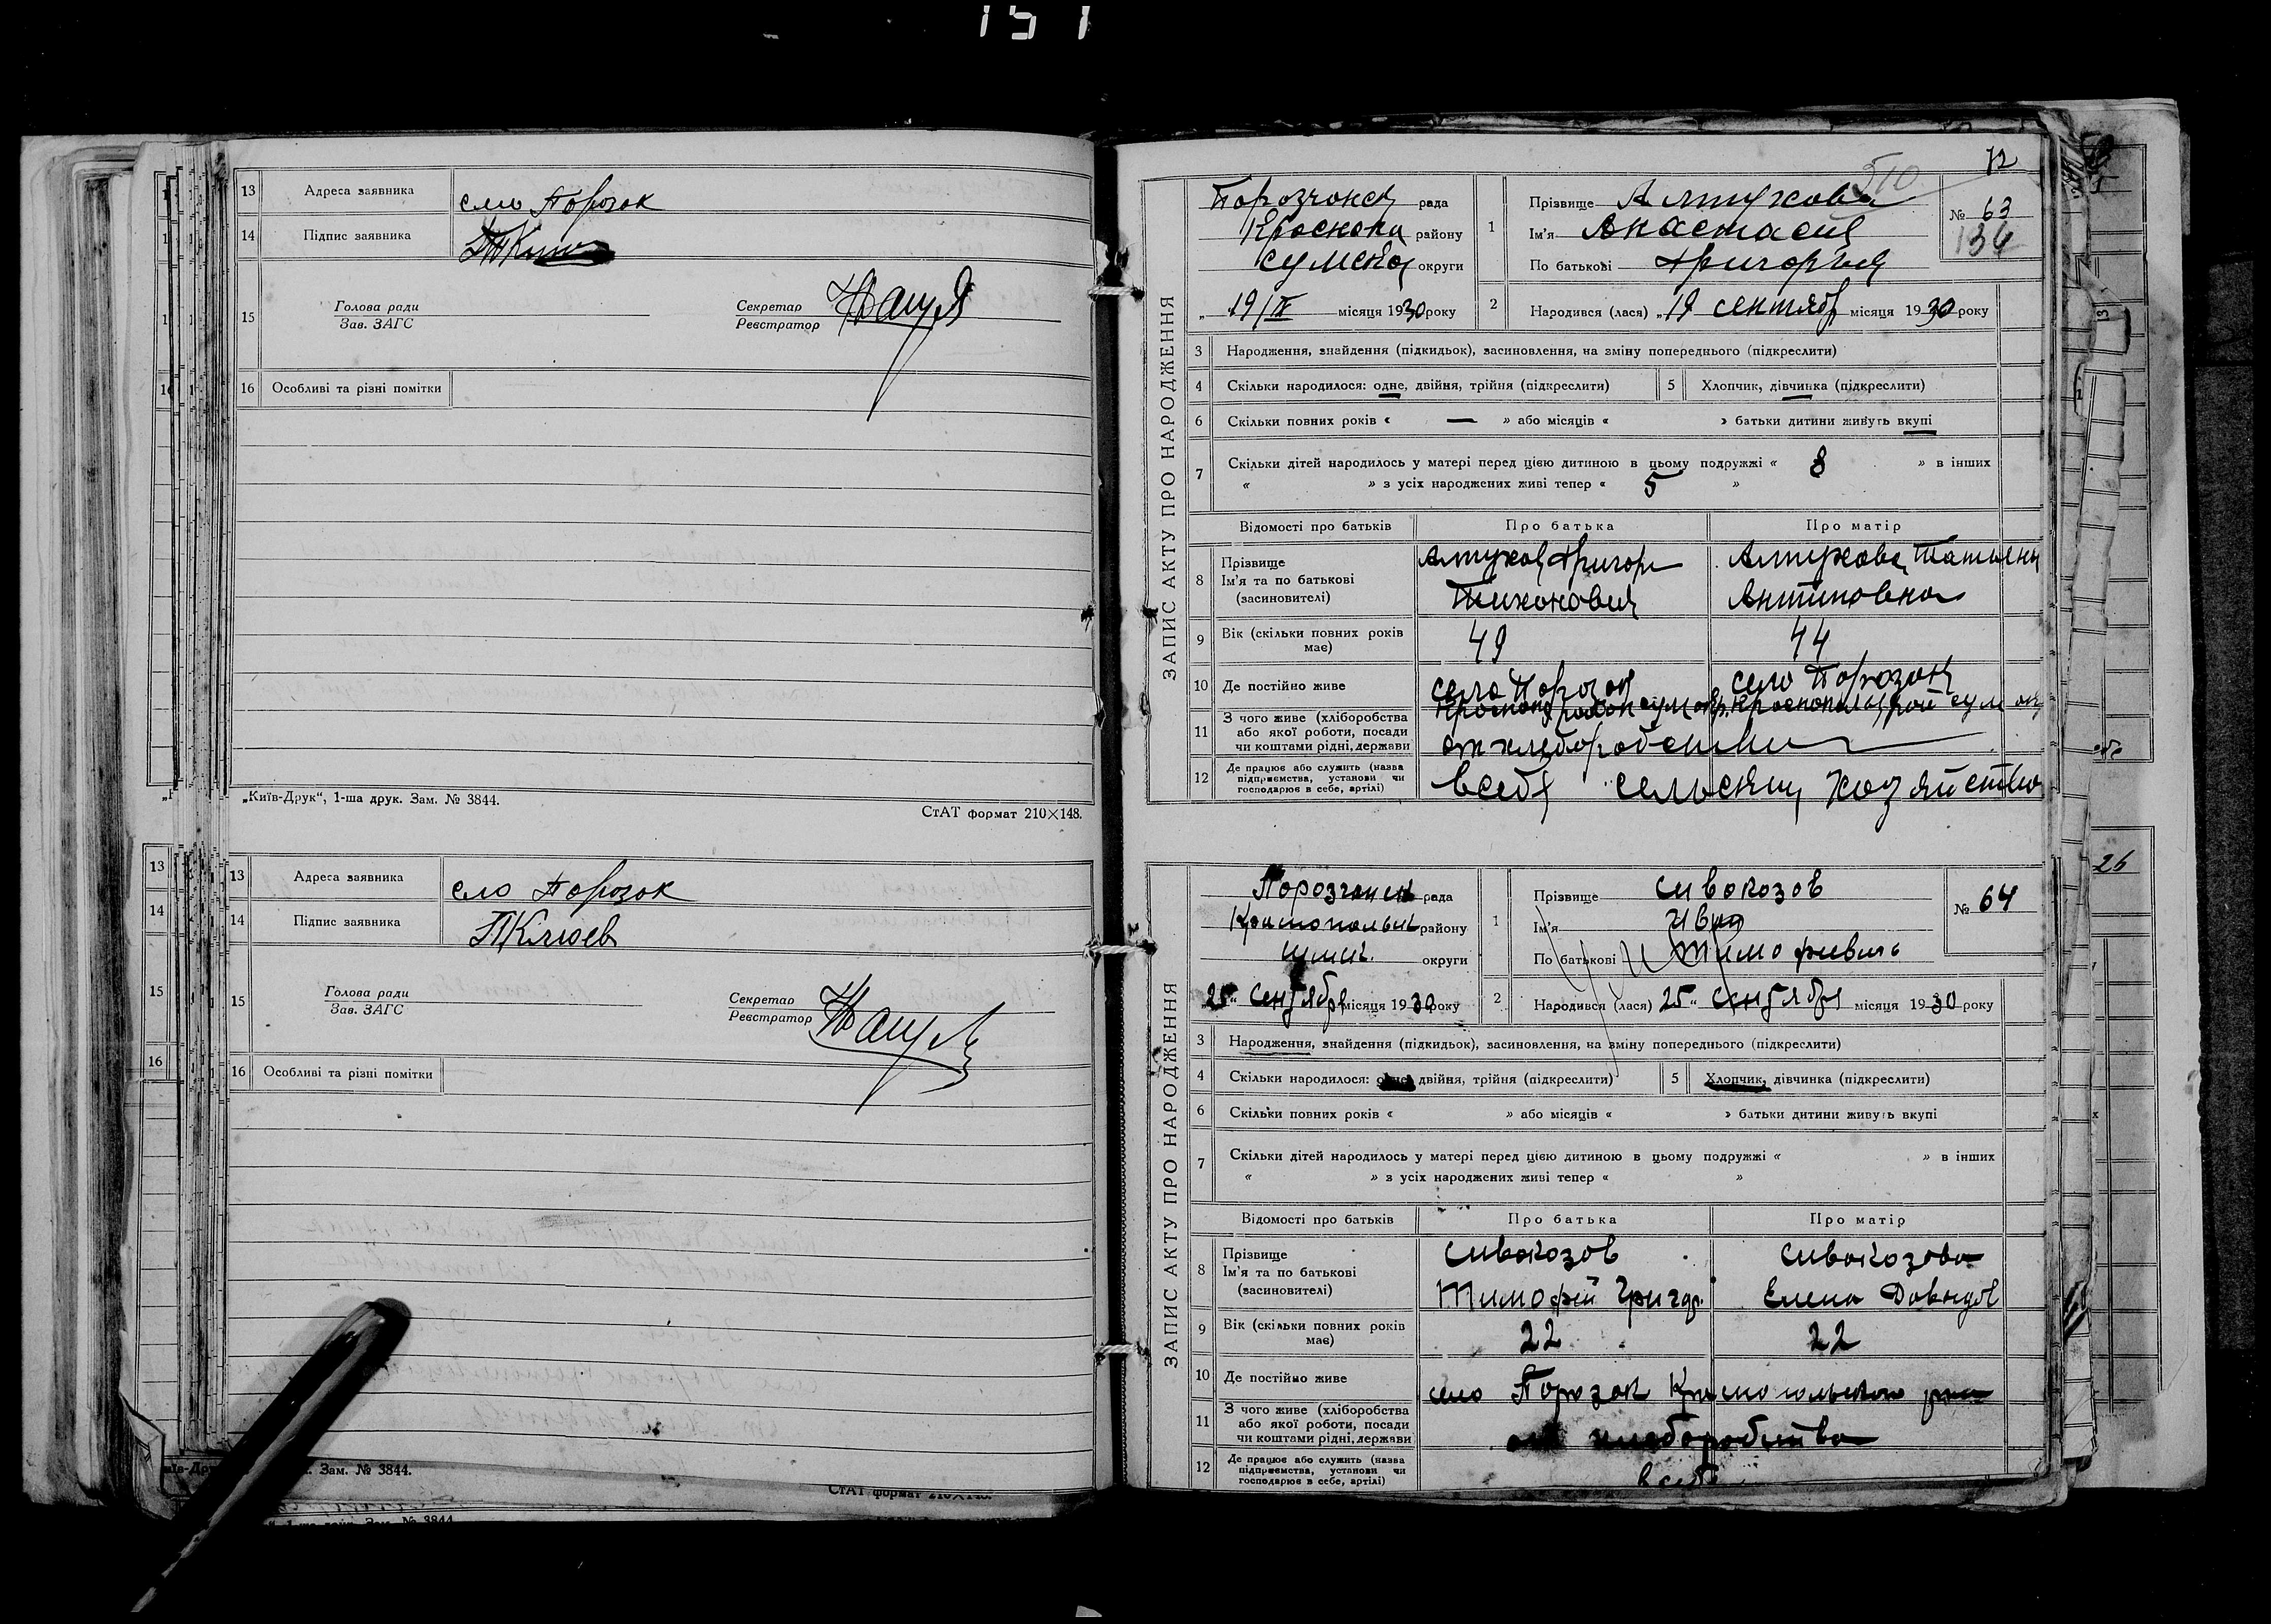 151
13 Адреса заявника село Порозок
14 Підпис заявника
15 Голова ради
Зав. ЗАГС
Секретар
Реєстратор
16 Особливі та різні помітки
„Київ-Друк“, 1-ша друк. Зам. № 3844.
СтАТ формат 210×148.
13 Адреса заявника село Порозок
14 Підпис заявника ТКлюев
15 Голова ради
Зав. ЗАГС
Секретар
Реєстратор
16 Особливі та різні помітки
Зам. № 3844.
СтАТ формат 210×148.
72
510
ЗАПИС АКТУ ПРО НАРОДЖЕННЯ
Порозчонск рада
Краснопи району
Сумско округи
„ 19/IX місяця 1930 року
1 Прізвище Алтухова
Ім'я Анастасия
По батькові Григорьев
№ 63
136
2 Народився (лася) „19 сентябр місяця 1930 року
3 Народження, знайдення (підкидьок), засиновлення, на зміну попереднього (підкреслити)
4 Скільки народилося: одне, двійня, трійня (підкреслити)
5 Хлопчик, дівчинка (підкреслити)
6 Скільки повних років « — » або місяців « » батьки дитини живуть вкупі
7 Скільки дітей народилось у матері перед цією дитиною в цьому подружжі « 8 » в інших
« » з усіх народжених живі тепер « 5 »
Відомості про батьків Про батька Про матір
8 Прізвище
Ім'я та по батькові
(засновителі)
Алтухов Григор
Тихонович
Алтухова Татьяна
Антиповна
9 Вік (скільки повних років має) 49 44
10 Де постійно живе село Порозок село Порозок
11 З чого живе (хліборобства або якої роботи, посади чи коштами рідні, держави
12 Де працює або служить (назва підприємства, установи чи господарює в себе, артілі)
в себя сельским хозяйство
ЗАПИС АКТУ ПРО НАРОДЖЕННЯ
Порозчанск рада
Краснопольск району
Сумск. округи
25“ Сентября місяця 1930 року
1 Прізвище Сивокозов
Ім'я Иван
По батькові Тимофиевич
№ 64
2 Народився (лася) 25“ Сентября місяця 1930 року
3 Народження, знайдення (підкидьок), засиновлення, на зміну попереднього (підкреслити)
4 Скільки народилося: одне, двійня, трійня (підкреслити)
5 Хлопчик, дівчинка (підкреслити)
6 Скільки повних років « » або місяців « » батьки дитини живуть вкупі
7 Скільки дітей народилось у матері перед цією дитиною в цьому подружжі « » в інших
« » з усіх народжених живі тепер « »
Відомості про батьків Про батька Про матір
8 Прізвище
Ім'я та по батькові
(засиновителі)
Сивокозов
Тимофій Григор.
Сивокозова
Елена Давыдов
9 Вік (скільки повних років має) 22 22
10 Де постійно живе село Порозок Краснопольского рай
11 З чого живе (хліборобства або якої роботи, посади чи коштами рідні, держави
от хлеборобства
12 Де працює або служить (назва підприємства, установи чи господарює в себе, артілі)
в себе
26